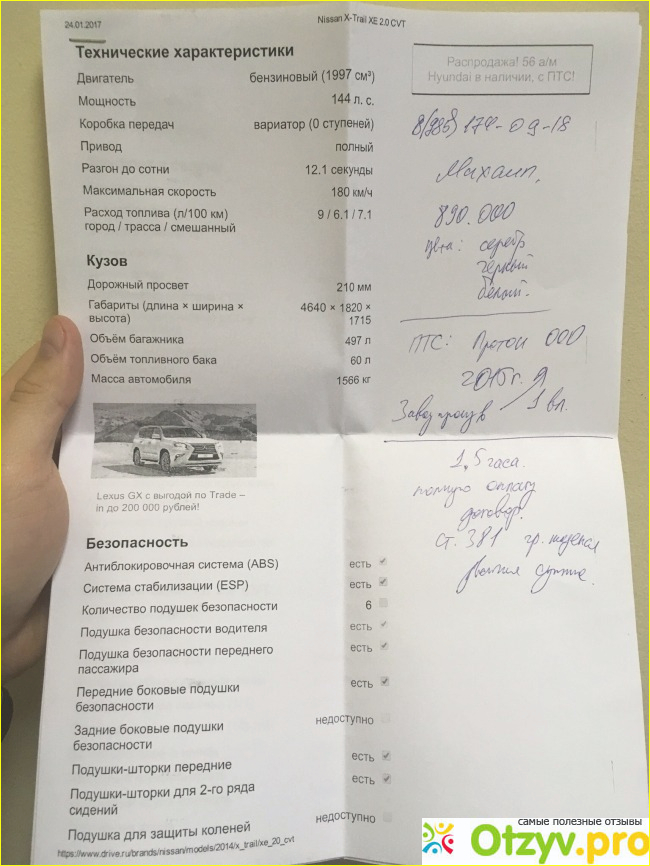 24.01.2017
Nissan X-Trail XE 2.0 CVT
Технические характеристики
Двигатель бензиновый (1997 см³)
Мощность 144 л. с.
Коробка передач вариатор (0 ступеней)
Привод полный
Разгон до сотни 12.1 секунды
Максимальная скорость 180 км/ч
Расход топлива (л/100 км) 9 / 6.1 / 7.1
город / трасса / смешанный
Кузов
Дорожный просвет 210 мм
Габариты (длина × ширина × 4640 × 1820 ×
высота) 1715
Объём багажника 497 л
Объём топливного бака 60 л
Масса автомобиля 1566 кг
Lexus GX с выгодой по Trade –
in до 200 000 рублей!
Безопасность
Антиблокировочная система (ABS) есть
Система стабилизации (ESP) есть
Количество подушек безопасности 6
Подушка безопасности водителя есть
Подушка безопасности переднего есть
пассажира
Передние боковые подушки есть
безопасности
Задние боковые подушки недоступно
безопасности
Подушки-шторки передние есть
Подушки-шторки для 2-го ряда есть
сидений
Подушка для защиты коленей недоступно
https://www.drive.ru/brands/nissan/models/2014/x_trail/xe_20_cvt
Распродажа! 56 а/м
Hyundai в наличии, с ПТС!
8(985) 174-09-18
Михаил,
890.000
цвета: серебр
черный
белый.
ПТС: ООО
2015г.
Завод произв 1 вл.
1,5 часа.
полную оплату
договор.
ст. 381 гр. кодекса
двойная сумма.
самые полезные отзывы
Otzyv.pro